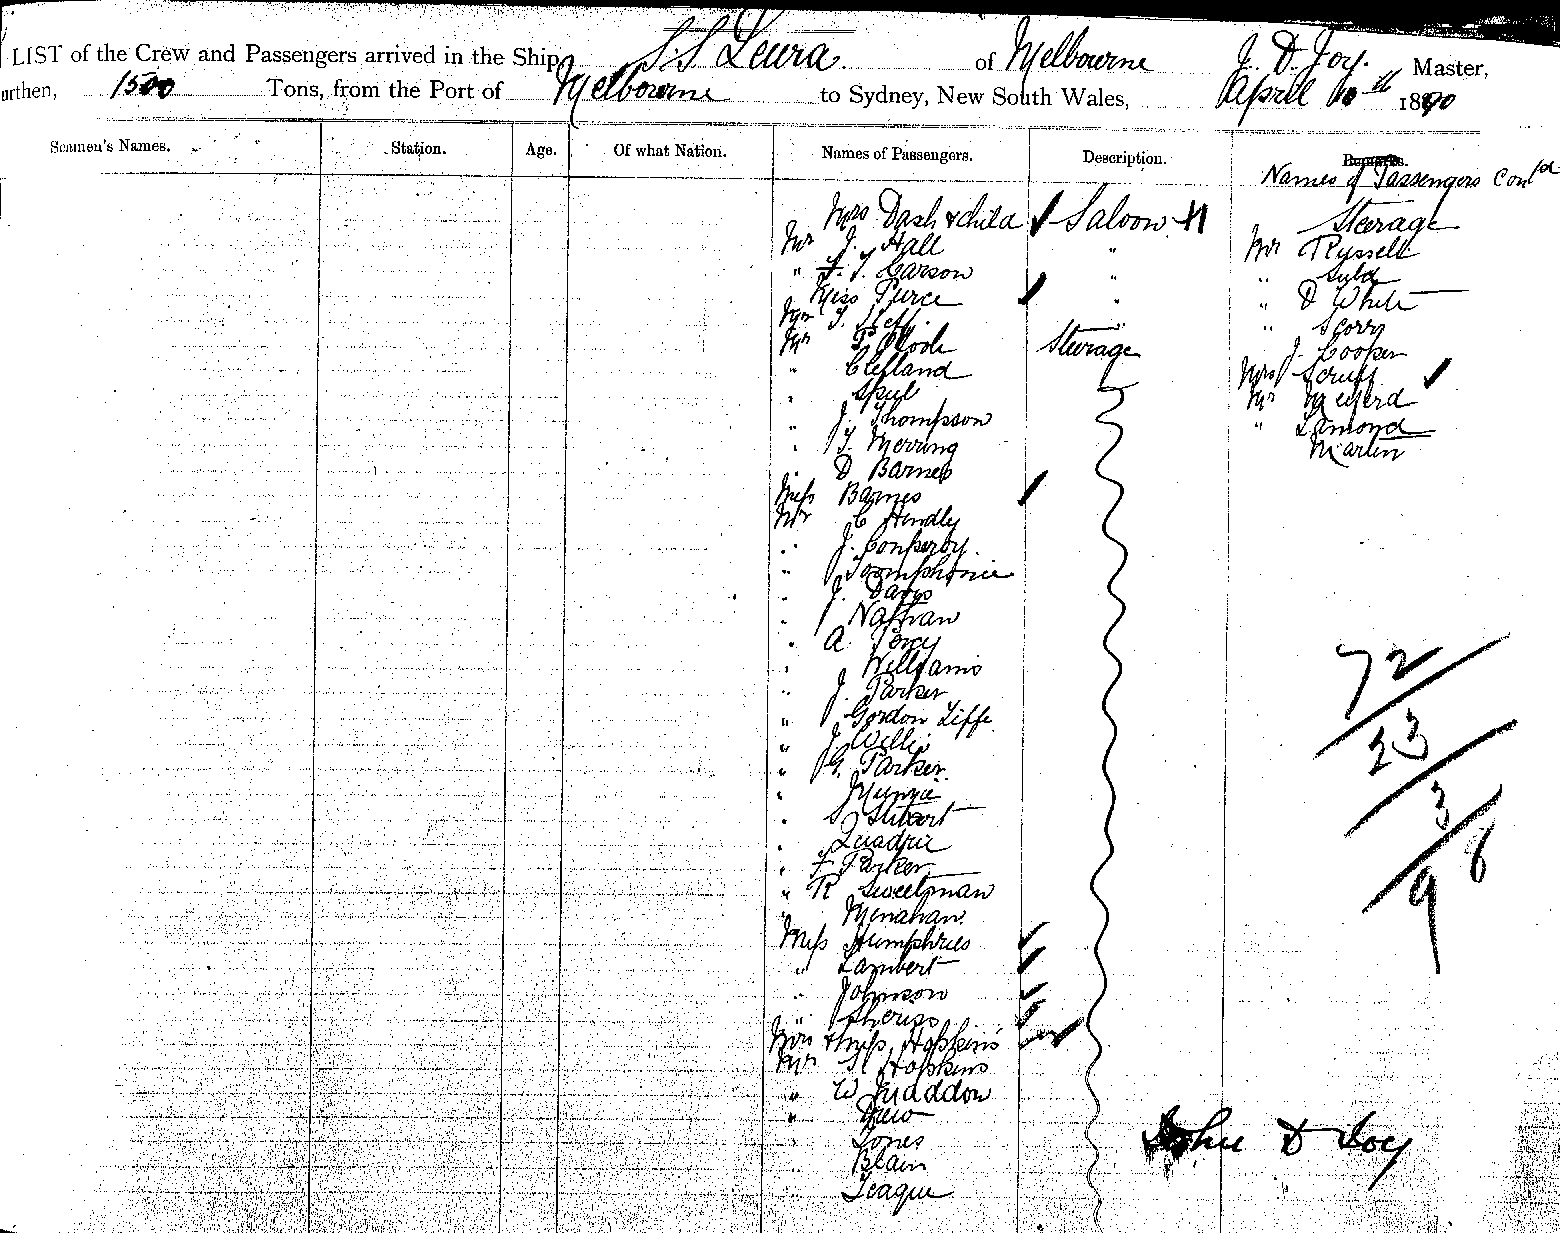 LIST of the Crew and Passengers arrived in the Ship S.S Leura. of Melbourne J. D. Joy. Master,
urthen, 1500 Tons, from the Port of Melbourne to Sydney, New South Wales, April 10th 1890
Seamen's Names. Station. Age. Of what Nation. Names of Passengers. Description. Remarks.
Names of Passengers Contd
Mrs Dash & child Saloon Steerage
Mr J. Hall " Mr Russell
" F. T. Carson " "
Miss Pierce " " D White
Mr T. " "
Mr Steerage J. Cooper
" Clelland Mrs
" Mr
" J. Thompson " Lamond
" T. Merring Martin
" D Barnes
Miss Barnes
Mr C Hendly
" J. Conperoy.
"
" J. Davis
" Nathan
" A
" Williams
" J. Parker
" Gordon Liffe
" J Willis
" G. Parker
"
" Stewart
"
" F Parker
" R Sweetman
" Menahan
Miss Humphries
" Lambert
" Johnson
"
Mrs & Miss Hopkins
Mr Hopkins
" W Maddon
" Drew
" Jones
" Blain
" Teague
72
23
3
8
9
John D Joy